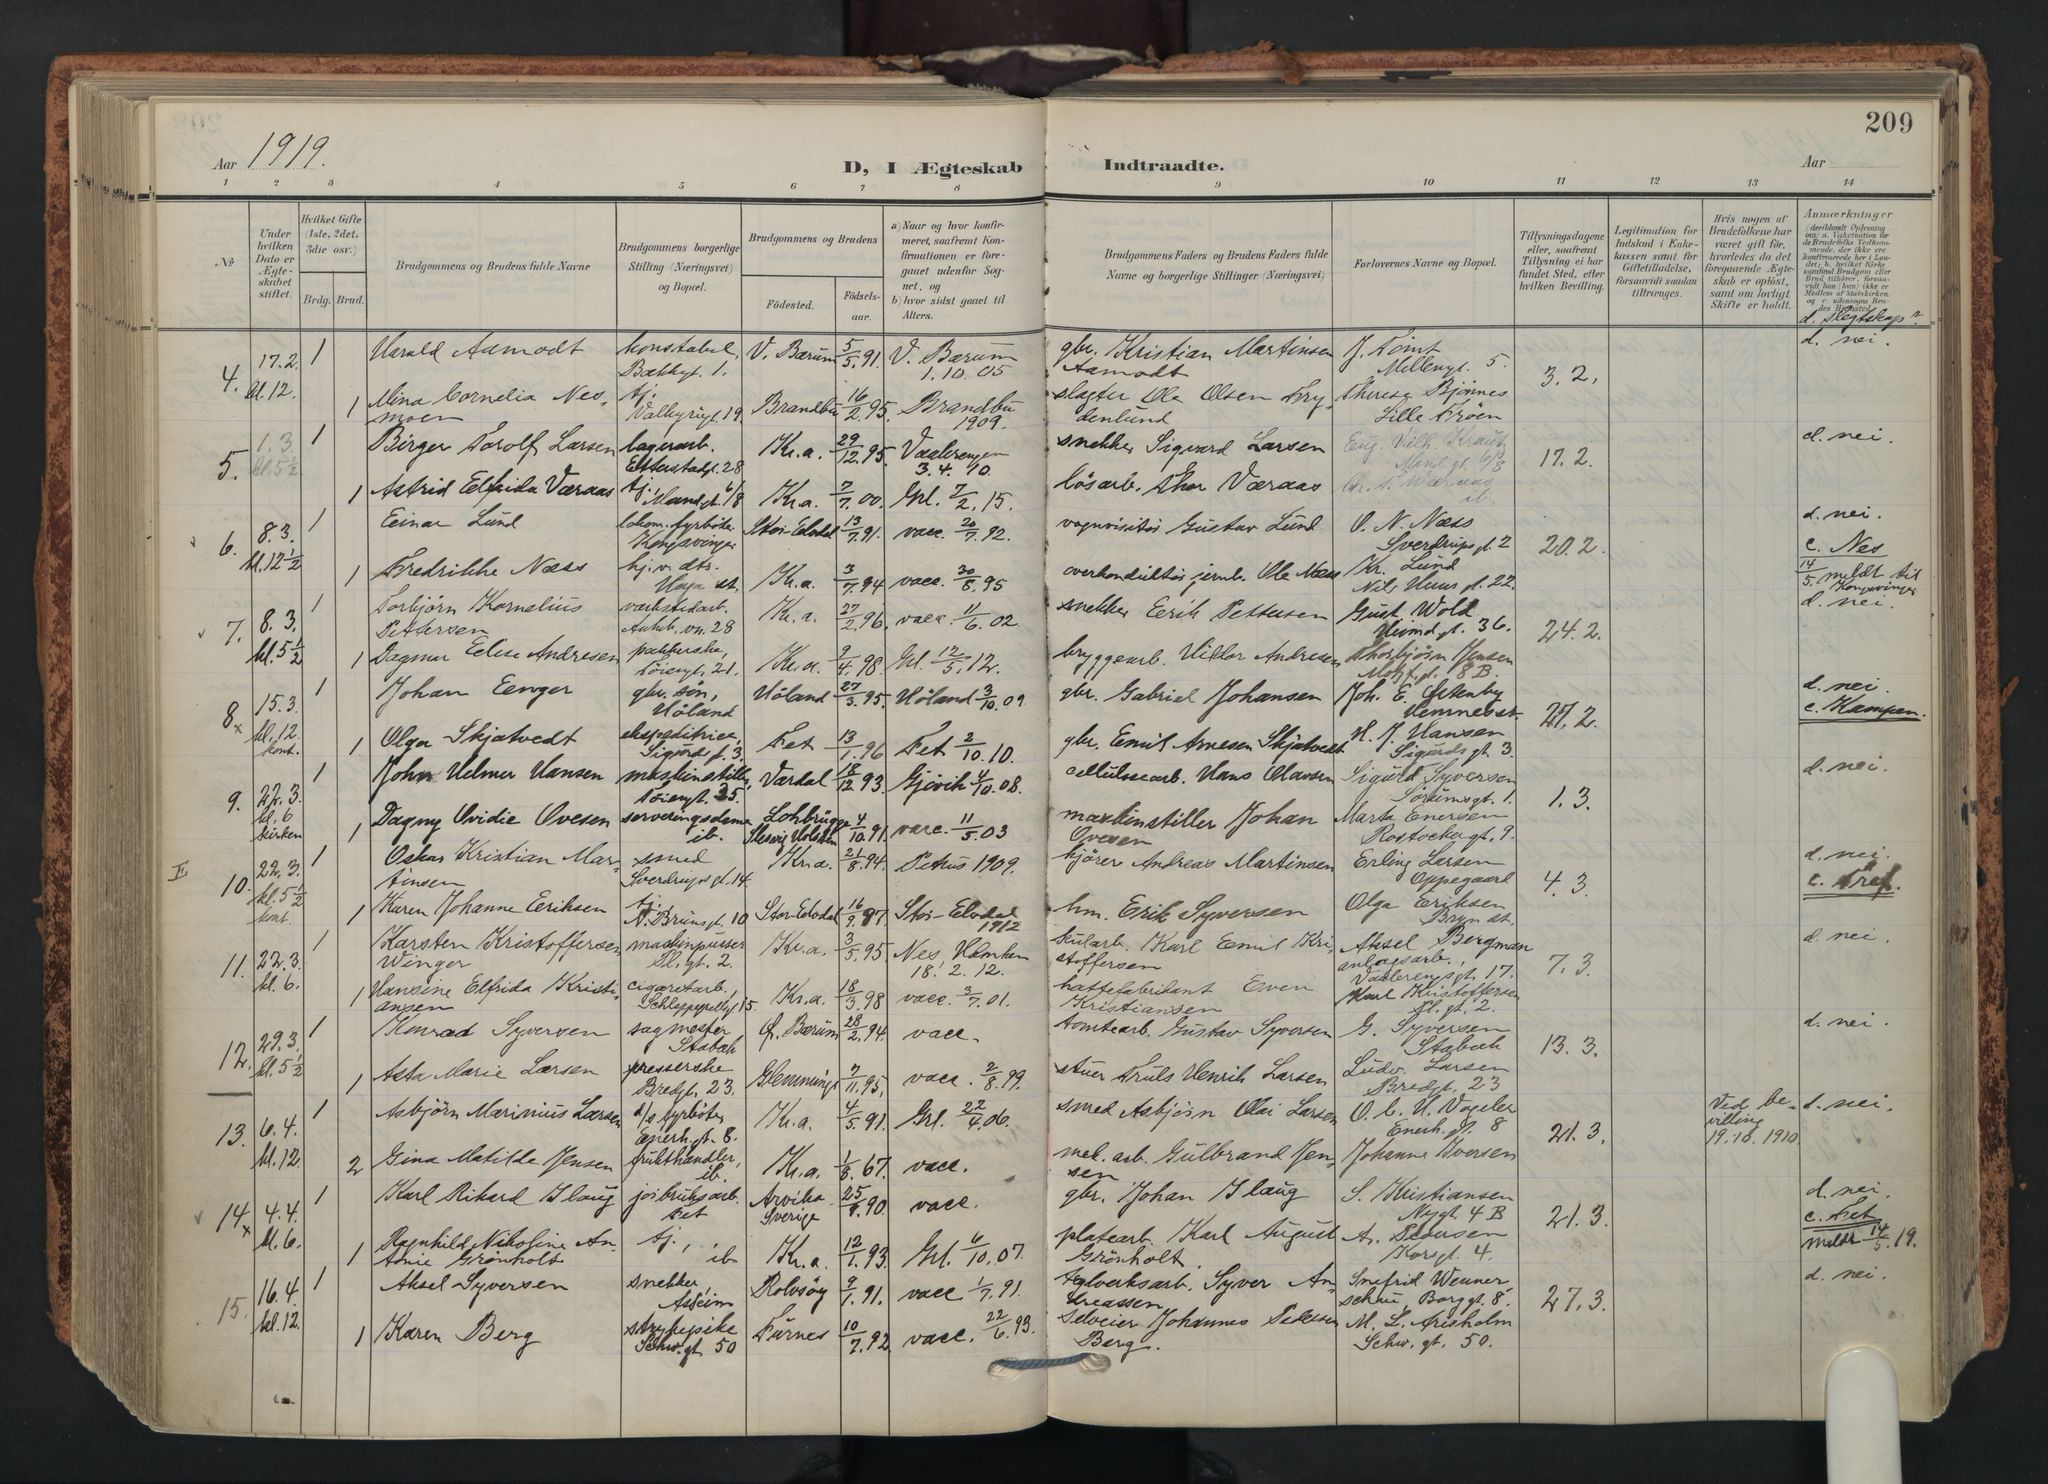 209
Aar 1919.
D, I Ægteskab Indtraadte.
Aar
1 2 3 4 5 6 7 8 9 10 11 12 13 14
No
Under hvilken Dato er Ægteskabet stiftet.
Hvilket Gifte (1ste, 2det, 3die osv.)
Brdg. Brud.
Brudgommens og Brudens fulde Navne
Brudgommens borgerlige Stilling (Næringsvei) og Bopæl.
Brudgommens og Brudens
Fødested. Fødsels-aar.
a) Naar og hvor konfirmeret, saafremt Konfirmationen er foregaaet udenfor Sognet, og
b) hvor sidst gaaet til Alters.
Brudgommens Faders og Brudens Faders fulde Navne og borgerlige Stillinger (Næringsvei)
Forlovernes Navne og Bopæl.
Tillysningsdagene eller, saafremt Tillysning ei har fundet Sted, efter hvilken Bevilling.
Legitimation for Indskud i Enkekassen samt for Giftetilladelse, forsaavidt saadan tiltrænges.
Hvis nogen af Brudefolkene har været gift før, hvorledes da det foregaaende Ægteskab er opløst, samt om lovligt Skifte er holdt.
Anmærkninger
d. Slegtskap?
4. 17.2. kl. 12. 1 Harald Aamodt konstabel, Bakkegt. 1. V. Bærum 5/5 91. V. Bærum 1.10.05 gbr. Kristian Martinsen Aamodt J. Tomt Møllergt. 5. 3.2. d. nei.
1 Mina Cornelia Nesmoen tj. Valkyrigt. 19 Brandbu 16/2 95. Brandbu 1909. slagter Ole Olsen Frydenlund Therese Bjønnes Lille Frøen
5. 1.3. kl. 5½ 1 Birger Torolf Larsen lagerarb. Etterstadgt. 28 Kr.a. 29/12 95. Vaalerengen 3.4.10. snekker Sigvard Larsen 17.2. d. nei.
1 Astrid Elfrida Væraas tj. 6/8 Kr.a. 7/7 00. Grl. 7/2 15. løsarb. Thor Væraas ib.
6. 8.3. kl. 12½ 1 Einar Lund lokom. fyrbøter Kongsvinger Stor-Elvdal 13/7 91. vacc. 20/7 92. vognvisitør Gustav Lund O. N. Næss Sverdrups gt. 2 20.2. d. nei. c. Nes 14/5 meldt til Kongsvinger
1 Fredrikke Næss hj.v. dtr. Haga st. Kr.a. 3/7 94 vacc. 30/8 95 overkonduktør jernb. Ole Næss Kr. Lund Nils Huus gt. 22.
7. 8.3. kl. 5½ 1 Torbjørn Kornelius Pettersen verkstedarb. Aakeb. vn. 28 Kr.a. 27/2 96. vacc. 11/6 02 snekker Erik Pettersen Gust. Wold Heimd. gt. 36. 24.2. d. nei.
1 Dagmar Elise Andresen pakkerske, Tøiengt. 21. Kr.a. 9/4 98 Grl. 12/5 12. bryggearb. Viktor Andresen Thorbjørn Jensen 8 B.
8. 15.3. kl. 12 kont. 1 Johan Eenger gbr. søn, Høland Høland 27/3 95. Høland 3/10 09 gbr. Gabriel Johansen Joh. E. Østenby Hemnes st. 27.2. d. nei. c. Kampen.
1 Olga Skjatvedt ekspeditrice, Sigurds gt. 3. Fet 13/1 96 Fet 2/10 10. gbr. Emil Arnesen Skjatvedt H. J. Hansen Sigurds gt. 3
9. 22.3. kl. 6 kirken 1 John Helmer Hansen maskinstiller, Tøiengt. 35. Vardal 18/12 93. Gjøvik 4/10 08. cellulosearb. Hans Olavsen Sigurd Syversen Sørumsgt. 1. 1.3. d. nei.
1 Dagny Ovidie Ovesen serveringsdame ib. Lohbrügge Slesvig Holsten 4/10 91. vacc. 11/5 03 maskinstiller Johan Ovesen Marta Enersen Rostockergt. 9.
10. 22.3. kl. 5½ kont. 1 Oskar Kristian Martinsen smed Sverdrups gt. 14 Kr.a. 21/8 94. Petrus 1909. kjører Andreas Martinsen Erling Larsen Oppegaard 4.3. d. nei.
1 Karen Johanne Eriksen tj. A. Bruns gt. 10 Stor-Elvdal 16/9 87. Stor-Elvdal 1912 hm. Erik Syversen Olga Eriksen Bryn st.
11. 22.3. kl. 6. 1 Karsten Kristoffersen Winger maskinpusser Pl. gt. 2. Kr.a. 3/5 95 Nes, Hamkan 18.2.12. Karl Emil Kristoffersen Aksel Bergman anlægsarb., Vaalerengsgt. 17. 7.3. d. nei.
1 Hansine Elfrida Kristiansen cigaretarb., Schleppegrellsgt. 15. Kr.a. 18/3 98 vacc. 3/7 01. hattefabrikant Even Kristiansen Karl Kristoffersen Pl. gt. 2.
12. 29.3. kl. 5½ 1 Konrad Syversen sagmester Stabæk Ø. Bærum 28/2 94. vacc. tomtearb. Gustav Syversen G. Syversen Stabæk 13.3. d. nei.
1 Asta Marie Larsen presserske Bredgt. 23 Glemminge 7/11 95. vacc. 2/8 99. stuer Truls Henrik Larsen Ludv. Larsen Bredgt. 23
13. 6.4. kl. 12 1 Asbjørn Marinius Larsen d/s fyrbøter Enerh. gt. 8. Kr.a. 4/5 91. Grl. 22/4 06. smed Asbjørn Olai Larsen O. C. H. Vogeler Enerh. gt. 8 21.3. Ved bevilling 19.10.1910. d. nei.
2 Gina Matilde Jensen frukthandler, ib. Kr.a. 1/8 67. vacc. mek. arb. Gulbrand Jensen Johanne Iversen
14. 4.4. kl. 6. 1 Karl Rikard Ilaug jordbruksarb. Fet Arvika Sverige 25/9 90. vacc. gbr. Johan Ilaug S. Kristiansen Nygt. 4 B 21.3. d. nei. c. Fet meldt 14/5 19.
1 Ragnhild Nikoline Antonie Grønholt tj., ib. Kr.a. 12/1 93. Grl. 6/10 07. platearb. Karl August Grønholt. A. Pedersen Korsgt. 4.
15. 16.4. kl. 12. 1 Aksel Syversen snekker, Askim Rolvsøy 9/1 91. vacc. 1/7 91. teglverksarb. Syver Andreassen Snefrid Wennerschau, Borggt. 8. 27.3. d. nei.
1 Karen Berg strykepike Schw. gt. 50 Furnes 10/7 92. vacc. 22/6 93. selveier Johannes Pedersen Berg. M. L. Arisholm Schw. gt. 50.